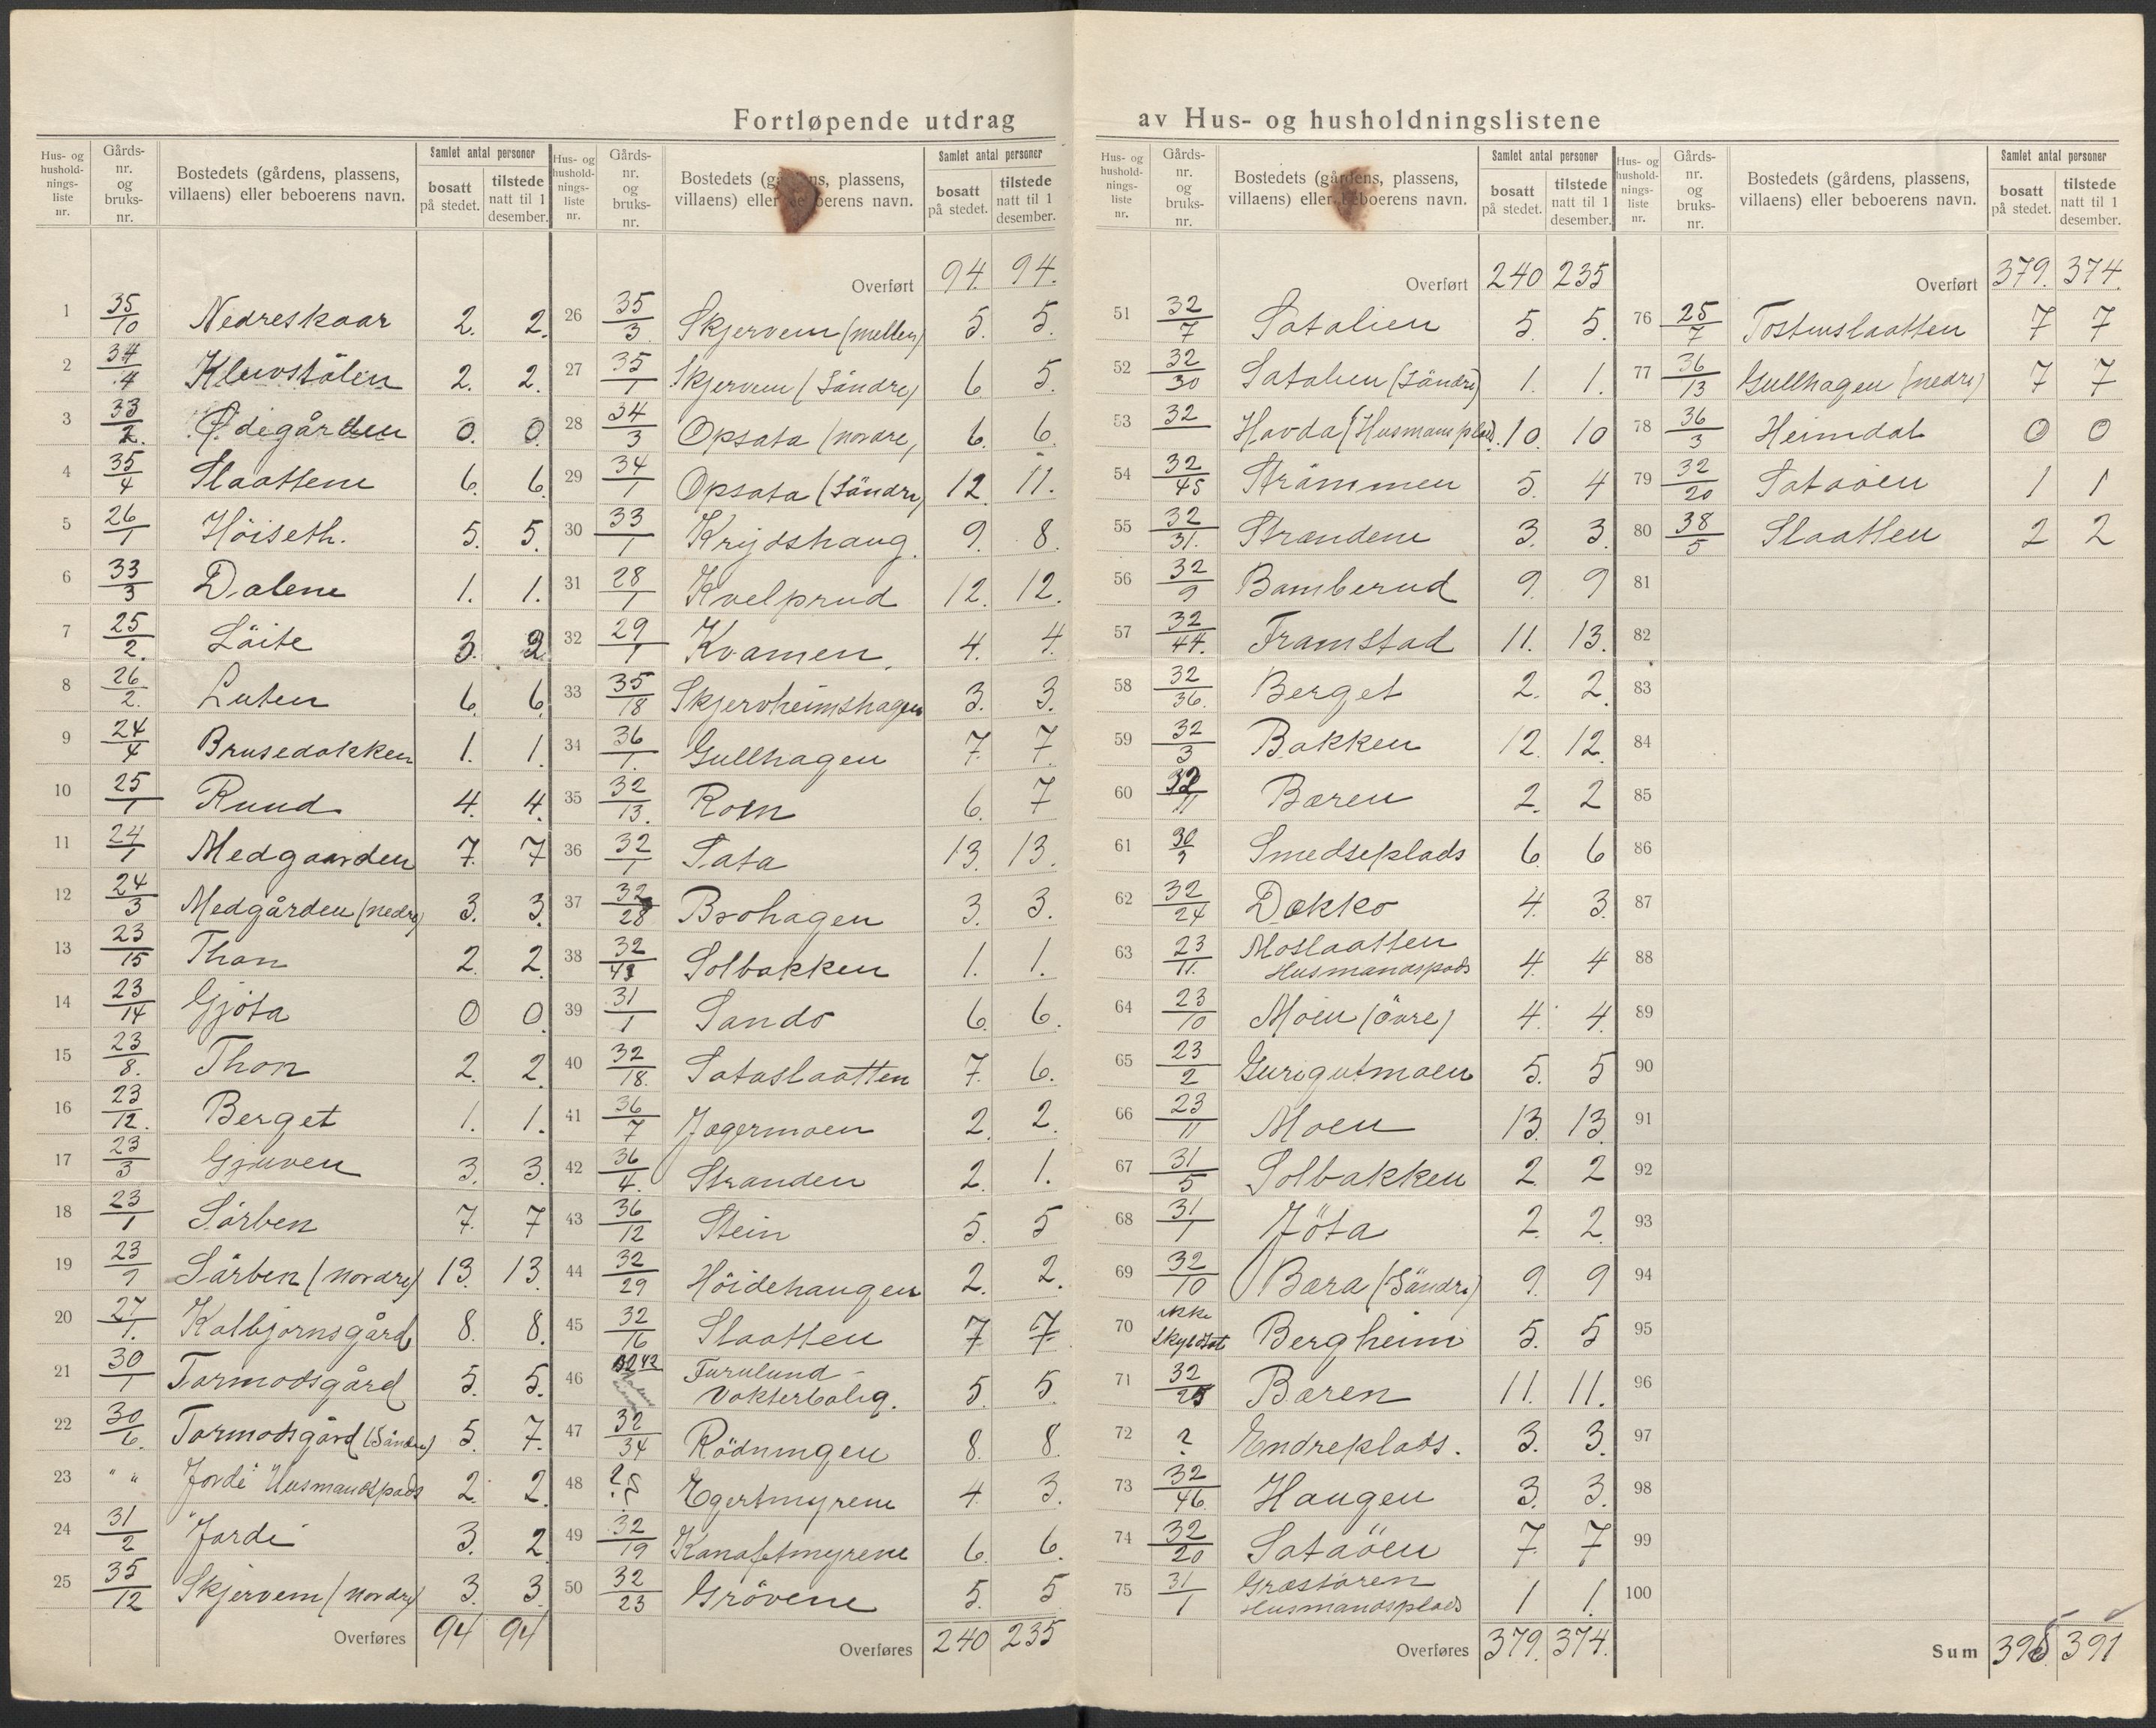 Fortløpende utdrag av Hus- og husholdningslistene
Hus- og hushold-nings-liste nr. | Gårds-nr. og bruks-nr. | Bostedets (gårdens, plassens, villaens) eller beboerens navn. | Samlet antal personer | bosatt på stedet. | tilstede natt til 1 desember.
1 35/10 Nedreskaar 2. 2.
2 34/4 Kluvstölen 2. 2.
3 33/2. Ødegården 0. 0.
4 35/4 Slaattene 6. 6.
5 26/1 Höiseth. 5. 5.
6 33/3 Dalene 1. 1.
7 25/2. Löite 3.
8 26/2. Luten 6. 6.
9 24/4 Brusedokken 1. 1.
10 25/1 Ruud 4. 4.
11 24/1 Medgaarden 7. 7
12 24/3 Medgården (nedre) 3. 3.
13 23/15 Thon 2. 2.
14 23/14 Gjöta 0 0.
15 23/8. Thon 2. 2.
16 23/12. Berget 1. 1.
17 23/3 Gjuven 3. 3.
18 23/1 Sörben 7. 7.
19 23/9 Sörben (nordre) 13. 13
20 27/1. Kolbjørnsgård 8. 8.
21 30/1 Tormodsgård 5. 5.
22 30/6. Tormodsgård (Söndre) 5. 7.
23 " " Jordi Husmandspads 2. 2.
24 31/2 Jordi 3. 2
25 35/12 Skjervem (nordre) 3. 3.
Overføres 94 94
Hus- og hushold-nings-liste nr. | Gårds-nr. og bruks-nr. | Bostedets (gårdens, plassens, villaens) eller beboerens navn. | Samlet antal personer | bosatt på stedet. | tilstede natt til 1 desember.
Overført 94. 94.
26 35/3 Skjervem (mellem) 5. 5.
27 35/1 Skjervem (Söndre) 6. 5.
28 34/3 Opsata (nordre) 6. 6.
29 34/1 Opsata (Söndre) 12. 11.
30 33/1 Krydshaug. 9. 8.
31 28/1 Kvelprud 12. 12.
32 29/1 Kvamen. 4. 4.
33 35/18 Skjervheimshagen 3. 3.
34 36/1. Gullhagen 7. 7.
35 32/13. Roen 6. 7
36 32/1 Sata 13. 13.
37 32/28 Brohagen 3. 3.
38 32 Solbakken 1. 1.
39 31/1 Sando 6. 6.
40 32/18. Sataslaatten 7. 6.
41 36/7 Jægermoen 2. 2.
42 36/4. Stranden 2. 1.
43 36/12 Stein 5. 5
44 32/29 Höidehaugen 2. 2.
45 32/16 Slaatten 7 7.
46 3242 Furulund - Vokterbolig. 5. 5.
47 32/34 Rödningen 8. 8.
48 ? Egertmyrene 4. 3.
49 32/19 Kanaftmyrene 6. 6.
50 32/23 Grövene 5. 5
Overføres 240 235
Hus- og hushold-nings-liste nr. | Gårds-nr. og bruks-nr. | Bostedets (gårdens, plassens, villaens) eller beboerens navn. | Samlet antal personer | bosatt på stedet. | tilstede natt til 1 desember.
Overført 240 235
51 32/7 Satalien 5. 5.
52 32/30 Satalien (Söndre) 1. 1.
53 32 Havda (Husmans plads. 10. 10
54 32/45 Strömmen 5. 4
55 32/31. Strandene 3. 3.
56 32/9 Bamberud 9. 9
57 32/44. Framstad 11. 13.
58 32/36. Berget 2. 2.
59 32/3 Bakken 12. 12.
60 32/11 Baren 2. 2
61 30/9 Smedseplads 6. 6
62 32/24 Dokko 4. 3.
63 23/11. Moslaatten Husmandspads 4. 4
64 23/10 Moen (övre) 4. 4.
65 23/2 Gurigutmoen 5. 5
66 23/11 Moen 13. 13.
67 31/5 Solbakken 2. 2
68 31/1 Jöta 2. 2.
69 32/10 Bæra (Söndre) 9. 9
70 ikke skyldsat Bergheim 5. 5
71 32/25 Bæren 11. 11.
72 ? Endreplads. 3. 3.
73 32/46. Haugen 3. 3.
74 32/20 Sataöen 7. 7
75 31/1 Husmandsplads 1 1.
Overføres 379. 374.
Hus- og hushold-nings-liste nr. | Gårds-nr. og bruks-nr. | Bostedets (gårdens, plassens, villaens) eller beboerens navn. | Samlet antal personer | bosatt på stedet. | tilstede natt til 1 desember.
Overført 379. 374.
76 25/7 Tostenslaatten 7 7
77 36/13 Gullhagen (nedre) 7 7
78 36/3 Heimdal 0 0
79 32/20 Sataöen 1 1
80 38/5 Slaatten 2 2
81
82
83
84
85
86
87
88
89
90
91
92
93
94
95
96
97
98
99
100
Sum 391